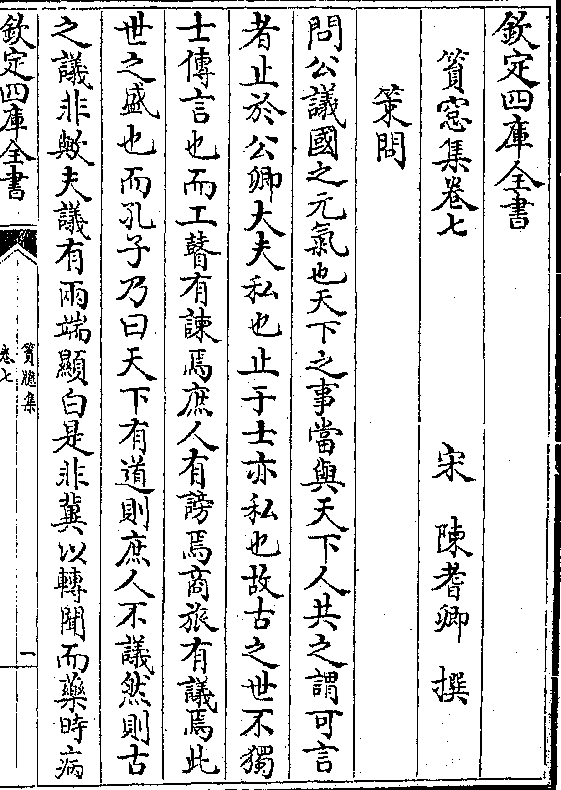 欽定四庫全書
篔窻集卷七
宋 陳耆卿 撰
策問
問公議國之元氣也天下之事當與天下人共之謂可言
者止於公卿大夫私也止于士亦私也故古之世不獨
士傳言也而工瞽有諫焉庶人有謗焉商旅有議焉此
世之盛也而孔子乃曰天下有道則庶人不議然則古
之議非歟夫議有兩端顯白是非冀以轉聞而藥時病
欽定四庫全書
篔牕集
卷七
一